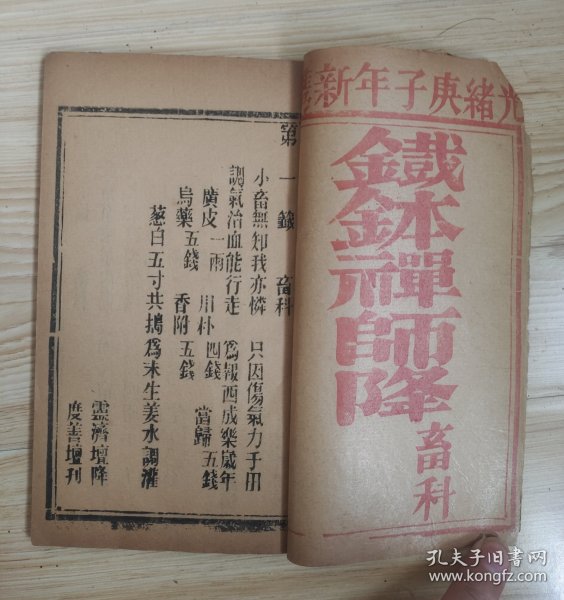 光緒庚子年新鐫
鐵鉢禪師降
畜科
第一籤 畜科
小畜無知我亦憐 只因傷氣力于田
調氣治血能行走 為報西成樂歲年
廣皮一兩 川朴四錢 當歸五錢
烏藥五錢 香附五錢
葱白五寸共搗為末生姜水調灌
靈濟壇降
度善壇刊
孔夫子旧书网
www.kongfz.com